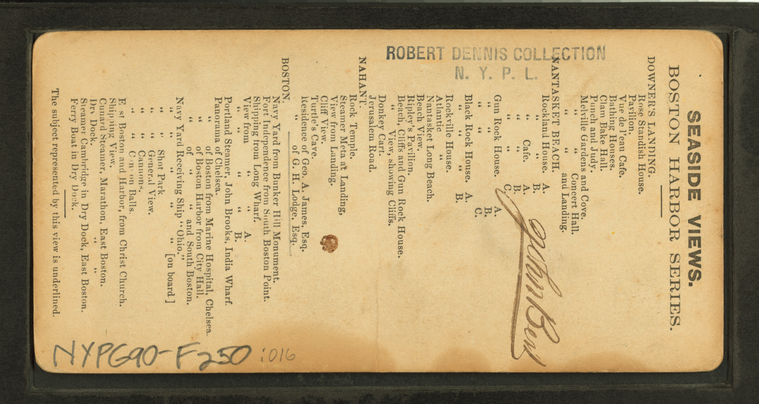 SEASIDE VIEWS.
BOSTON HARBOR SERIES.
DOWNER'S LANDING.
Rose Standish House.
Pavilion.
Vue de l'eau Cafe.
Bathing Houses.
Clam Bake Hall.
Punch and Judy.
Melville Gardens and Cove.
" " Concert Hall.
" " and Landing.
NANTASKET BEACH.
Rockland House. A.
" " B.
" Cafe. A.
" " B.
" " C.
Gun Rock House. A.
" " B.
" " C.
Black Rock House. A.
" " B.
" " C.
Rockville House.
Atlantic "
Nantasket Long Beach.
Beach View.
Ripley's Pavilion.
Beach, Cliffs and Gun Rock House.
" View, showing Cliffs.
Donkey Cart.
Jerusalem Road.
NAHANT.
Rock Temple.
Steamer Meta at Landing.
View from Landing.
Cliff View.
Turtle's Cave.
Residence of Geo. A. James, Esq.
" of G. H. Lodge, Esq.
BOSTON.
Navy Yard from Bunker Hill Monument.
Fort Independence from South Boston Point.
Shipping from Long Wharf.
View from " " A.
" " " " B.
Portland Steamer, John Brooks, India Wharf.
Panorama of Chelsea.
" of Boston from Marine Hospital, Chelsea.
" of Boston Harbor from City Hall.
" of " " and South Boston.
Navy Yard Receiving Ship "Ohio."
" " " " " [on board]
" " Shot Park.
" " General View.
" " Cannons.
" " Cannon Balls.
East Boston and Harbor, from Christ Church.
Shipping View.
Cunard Steamer, Marathon, East Boston.
Dry Dock, " "
Steamer Cambridge in Dry Dock, East Boston.
Ferry Boat in Dry Dock.
The subject represented by this view is underlined.
ROBERT DENNIS COLLECTION
N. Y. P. L.
NYPG90-F250 :016